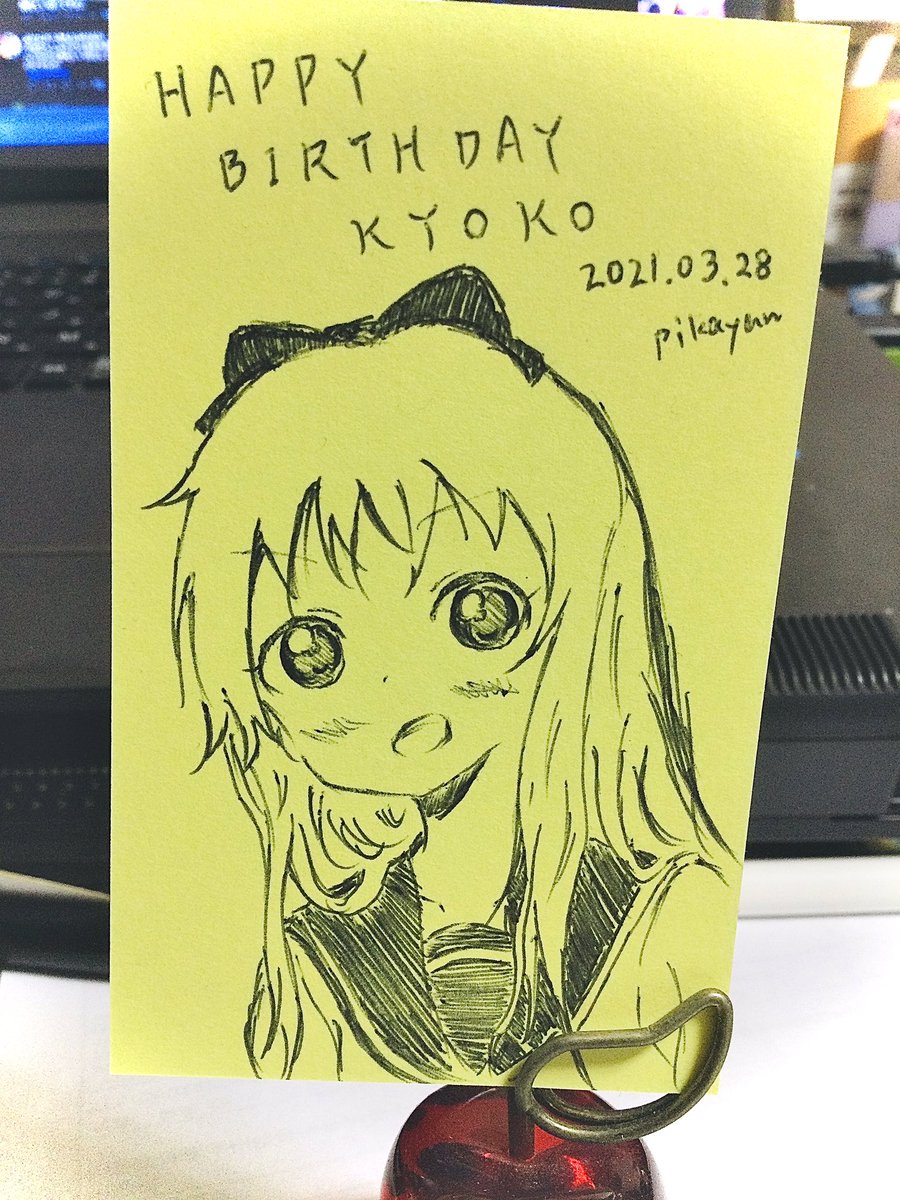 HAPPY
BIRTHDAY
KYOKO
2021.03.28
pikayun